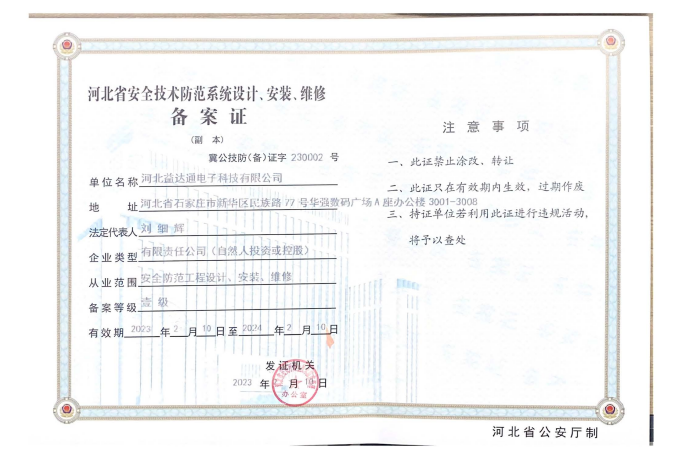 河北省安全技术防范系统设计、安装、维修
备案证
(副 本)
冀公技防(备)证字 230002 号
单位名称 河北益达通电子科技有限公司
地 址 河北省石家庄市新华区民族路 77 号华强数码广场 A 座办公楼 3001-3008
法定代表人 刘细辉
企业类型 有限责任公司(自然人投资或控股)
从业范围 安全防范工程设计、安装、维修
备案等级 壹级
有效期 2023 年 2 月 10 日至 2024 年 2 月 10 日
发证机关
2023 年 月 10 日
办公室
注意事项
一、此证禁止涂改、转让
二、此证只在有效期内生效，过期作废
三、持证单位若利用此证进行违规活动，
将予以查处
河北省公安厅制